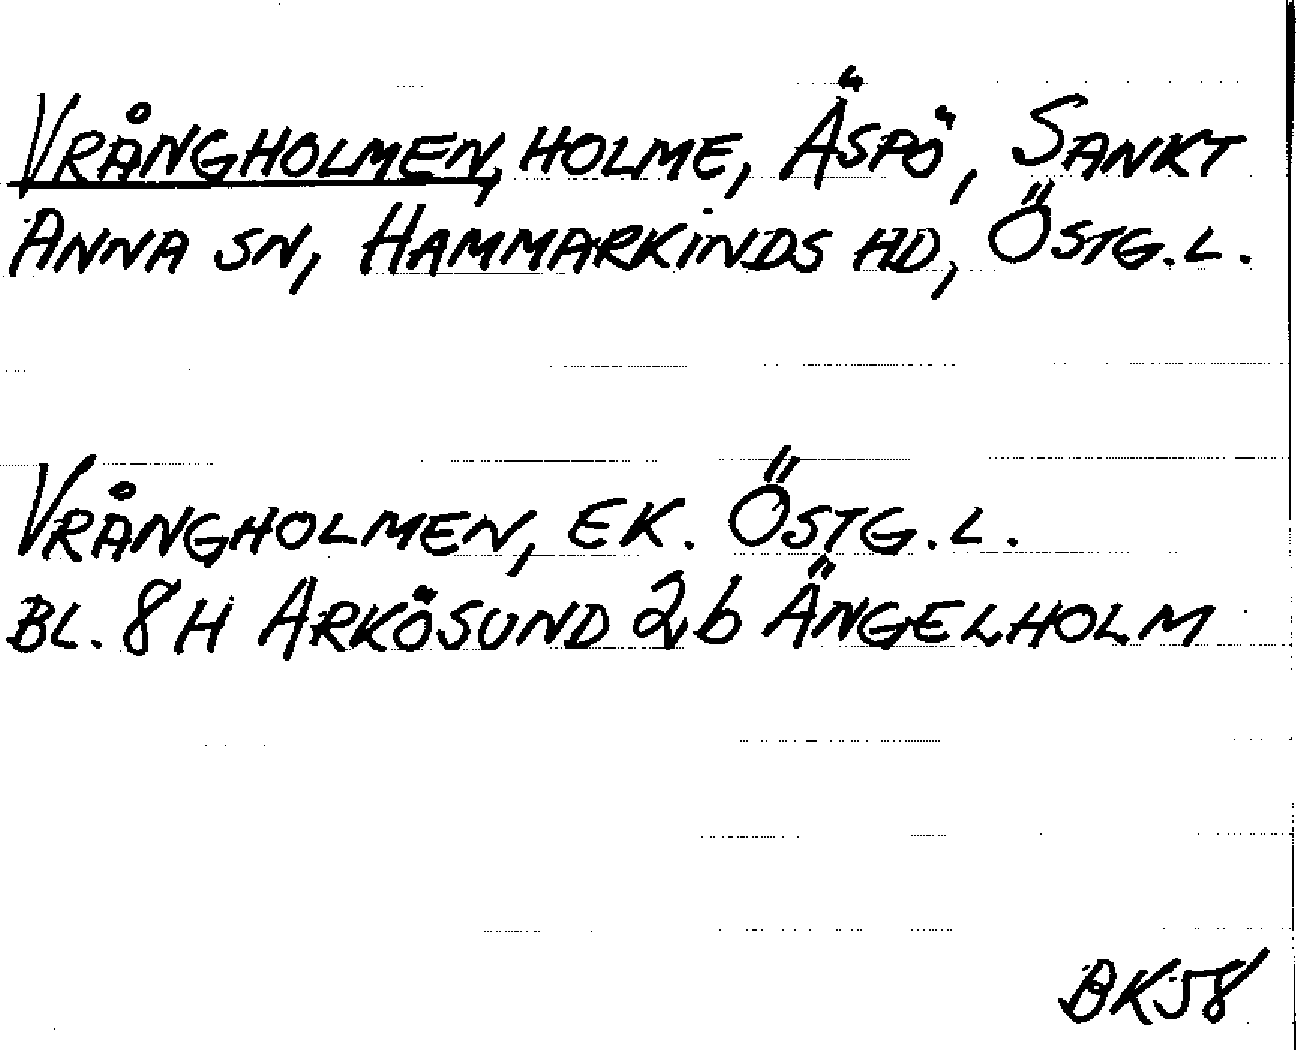 VRÅNGHOLMEN, HOLME, ÄSPÖ, SANKT
ANNA SN, HAMMARKINDS HD, ÖSTG. L.
VRÅNGHOLMEN, EK. ÖSTG. L.
BL. 8 H ARKÖSUND 2b ÄNGELHOLM
BK58